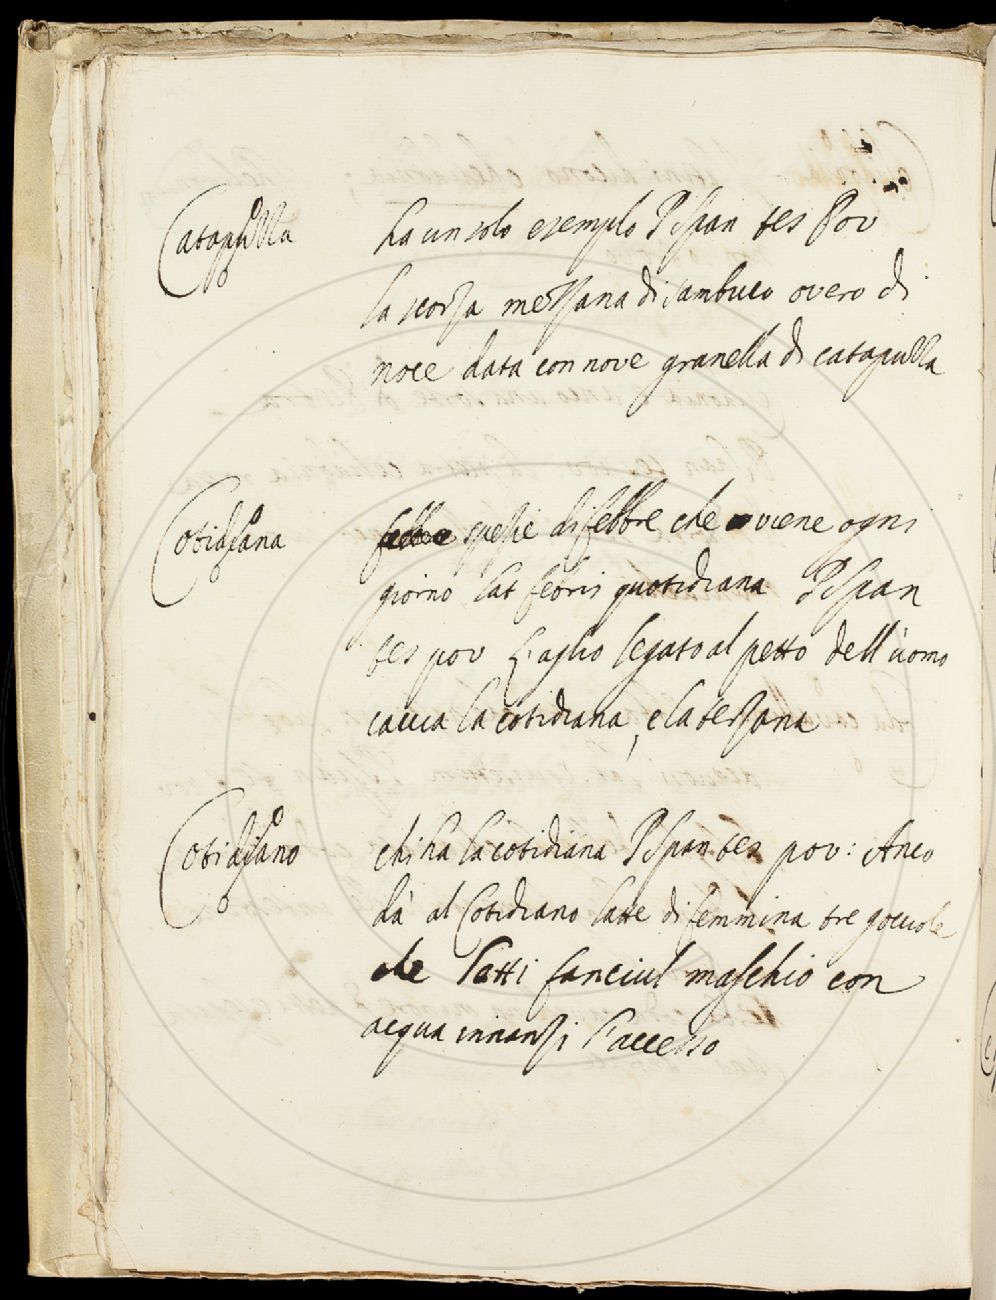 Catapuzza ha un solo esempio P Span tes Pov
la scorza mezzana di sambuco overo di
noce data con nove granella di catapuzza
Cotidiana spezie di febbre che viene ogni
giorno lat febris quotidiana P Span
tes pov L'aglio legato al petto dell'uomo
caccia la cotidiana, e la terzana
Cotidiano chi ha la cotidiana P Span tes pov: Anco
dà al Cotidiano latte di femmina tre gocciole
che latti fanciul maschio con
acqua innanzi l'accesso